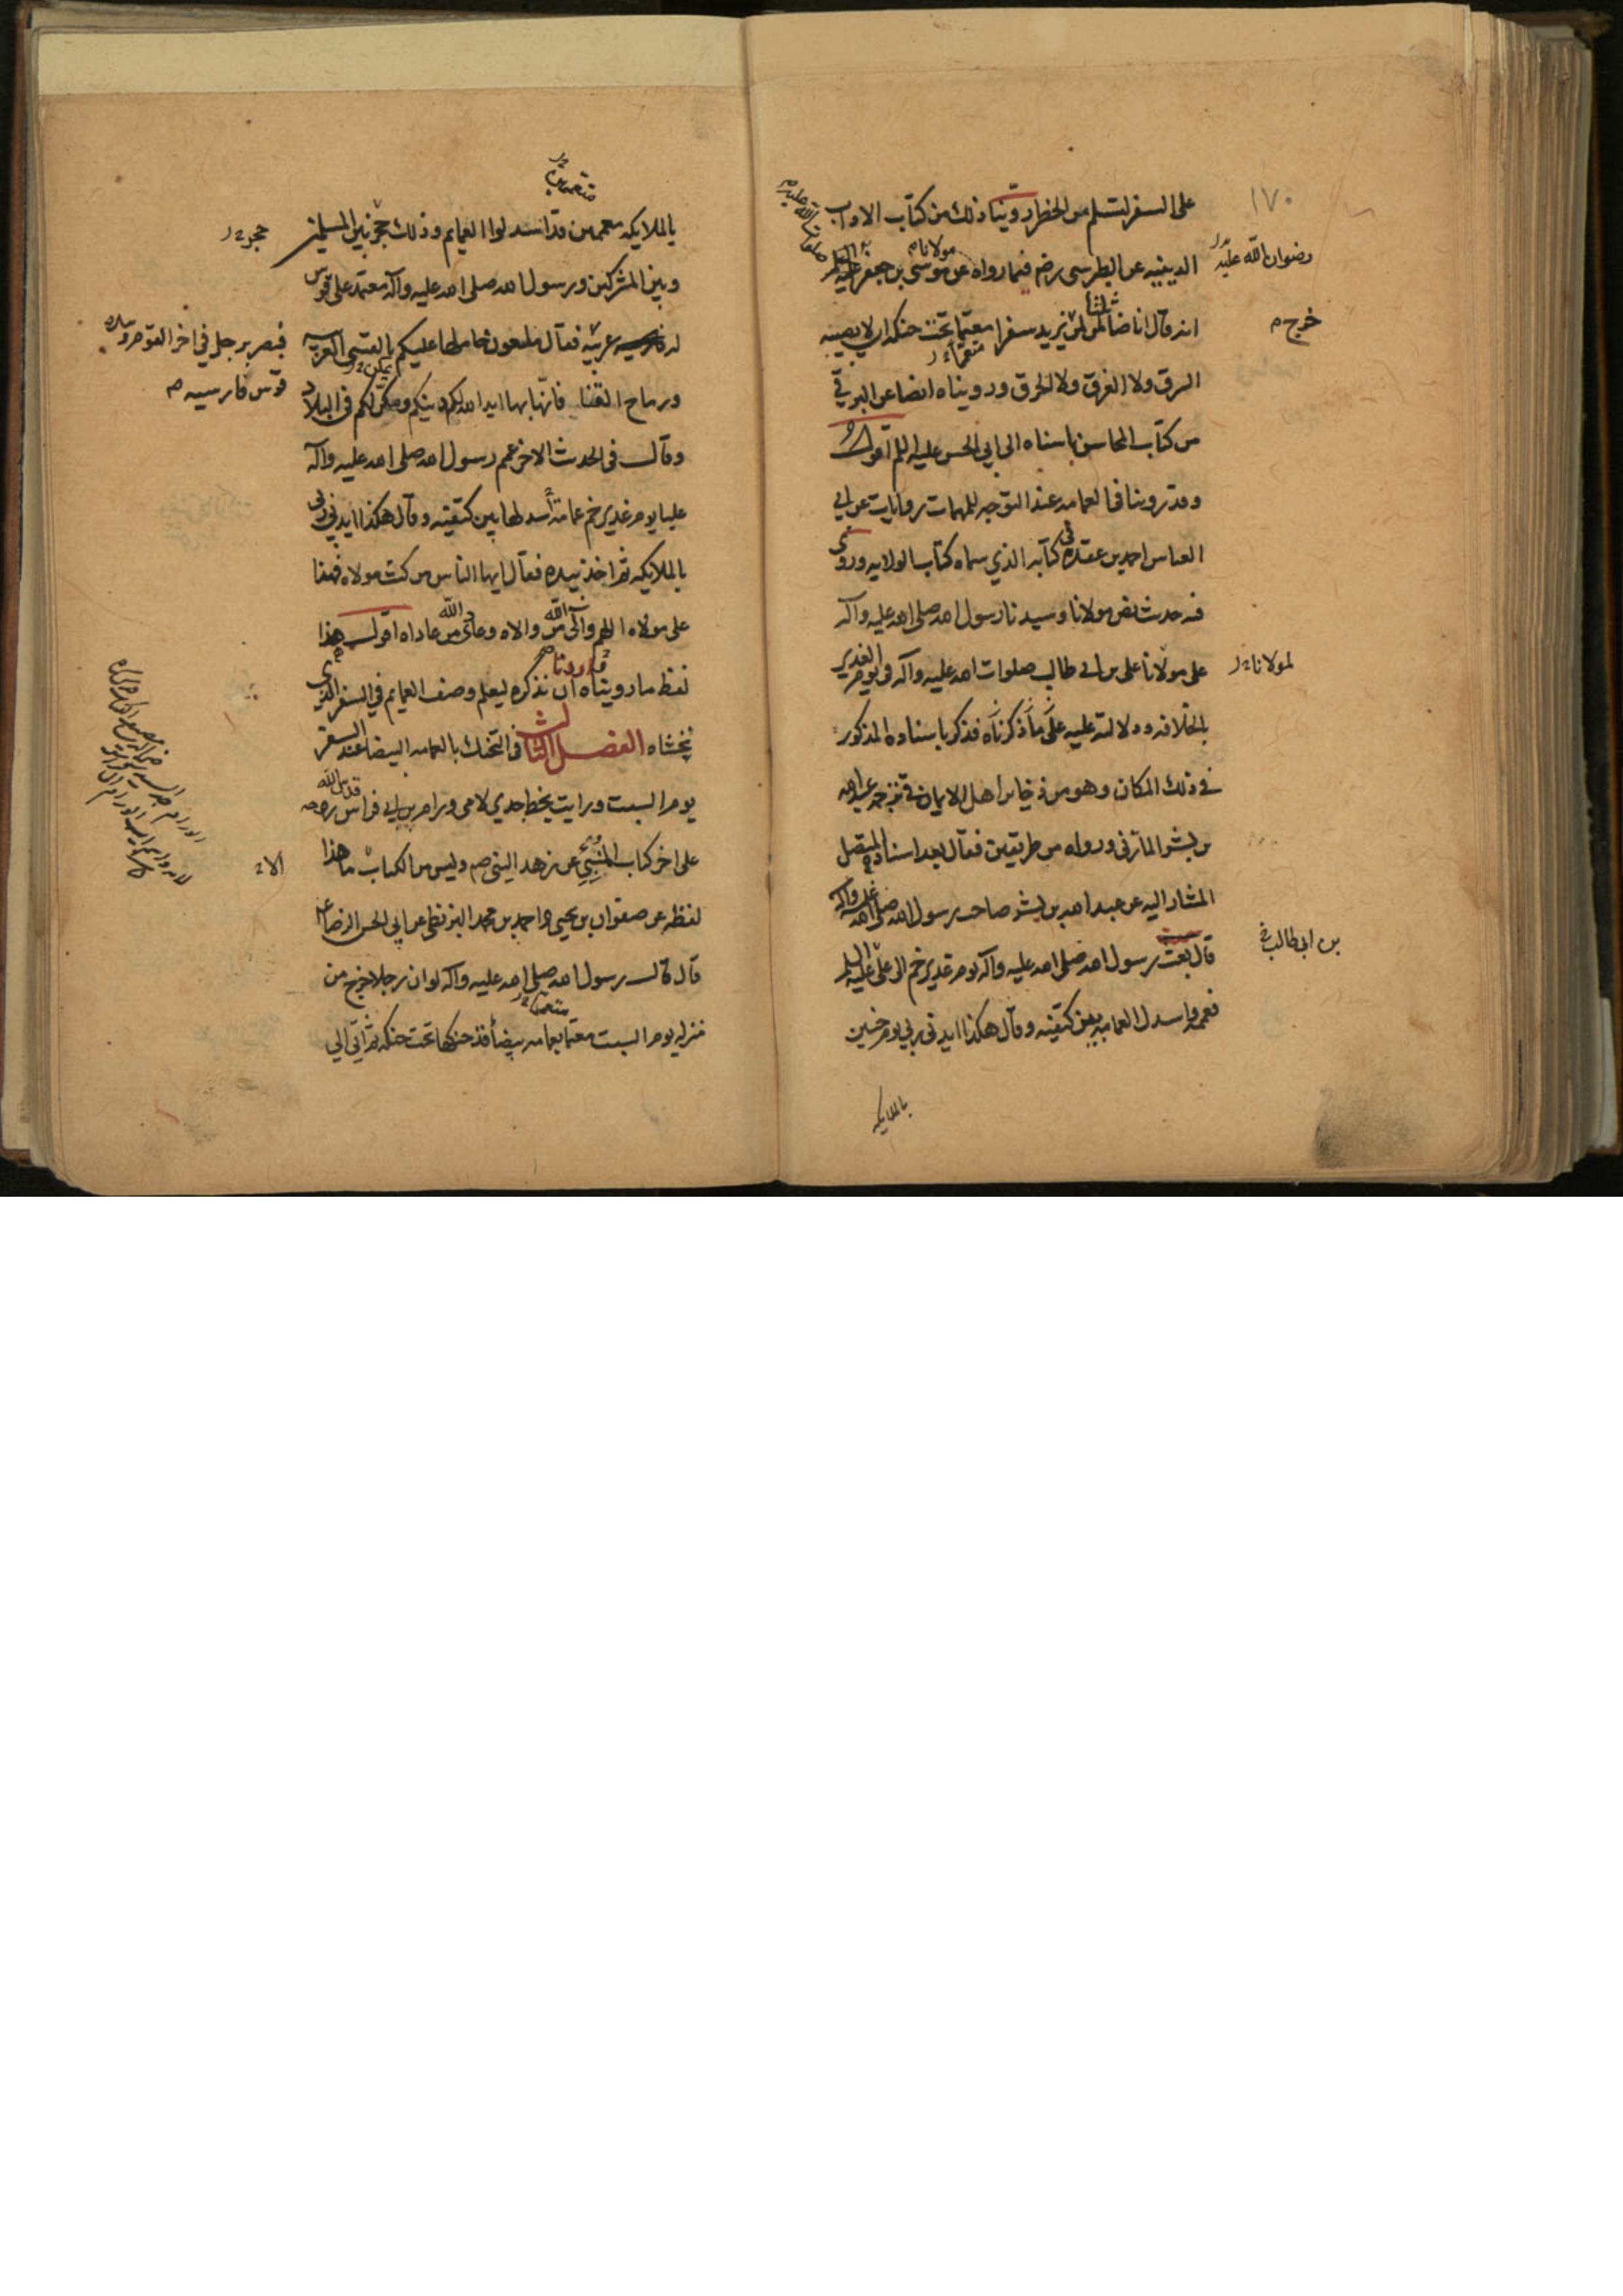 ١٧٠
على السفر لتسلم من الخطر روينا ذلك من كتاب الاداب
الدينيه عن الطبرسى رضى فيما رواه عن مولانا موسى بن جعفر عليه السلم
رضوان الله عليه
صلوات الله عليه
انه قال انا ضامن ثلثا لمن يريد سفرا معتما تحت حنكه ان لا يصيبه
خرج
السرق ولا الغرق ولا الحرق ورويناه ايضا عن البرقي
من كتاب المحاسن باسناه الى ابي الحسن عليه السلم اقول
وقد روينا في العمامه عند التوجه للمهمات روايات عن ابي
العباس احمد بن عقده في كتابه الذي سماه كتاب الولايه وروى
فيه حديث نص مولانا وسيدنا رسول الله صلى الله عليه واكه
على مولانا على بن ابي طالب صلوات الله عليه واله في يوم الغدير
لمولانا
بالخلافه ودلالته عليه على ما ذكرناه فذكر باسناده المذكور
في ذلك المكان وهو من ذخاير اهل الايمان في ترجمه عبد الله
بن بشر المازنى ورواه من طريقين فقال بعد اسناده المتصل
المشار اليه عن عبد الله بن بشر صاحب رسول الله صلى الله عليه واله
قال بعث رسول الله صلى الله عليه واكه يوم غدير خم الى على عليه السلم
بن ابى طالب
فعممه واسدل العمامه بين كتفيه وقال هكذا ايدنى ربي يوم حنين
بالملايكه
متعممين
بالملايكه معممين قد اسدلوا العمايم وذلك حجز بين المسلمين
حجز
وبين المشركين ورسول الله صلى الله عليه واكه معتمد على قوس
له عربيه فقال ملعون حاملها عليكم بالقسى العربيه
فبصر برجل في اخر القوم وبيده
قوس فارسيه
ورماح القنا فانها بها ايد الله لكم دينكم ومكن لكم في البلاد
وقال في الحديث الاخر عمم رسول الله صلى الله عليه واله
عليا يوم غدير خم عمامة اسدلها بين كتفيه وقال هكذا ايدني ربي
بالملايكه ثم اخذ بيده فقال ايها الناس من كنت مولاه فهذا
على مولاه اللهم والى الله من والاه وعادى الله من عاداه اقول هذا
لفظ ما رويناه اردنا ان نذكره ليعلم وصف العمايم في السفر الذي
نخشاه الفصل الثالث في التحنك بالعمامه البيضا عند السفر
يوم السبت ورايت بخط جدي لامى ورام بن ابي فراس قدس الله روحه
على اخر كتاب المنبي عن زهد النبي صم وليس من الكتاب ما هذا
لفظه عن صفوان بن يحيى واحمد بن محمد البزنطى عن ابي الحسن الرضا
قال قال رسول الله صلى الله عليه واكه لو ان رجلا خرج من
منزله يوم السبت معتما بعمامه بيضا قد حنكها تحت حنكه ثم اتى الى